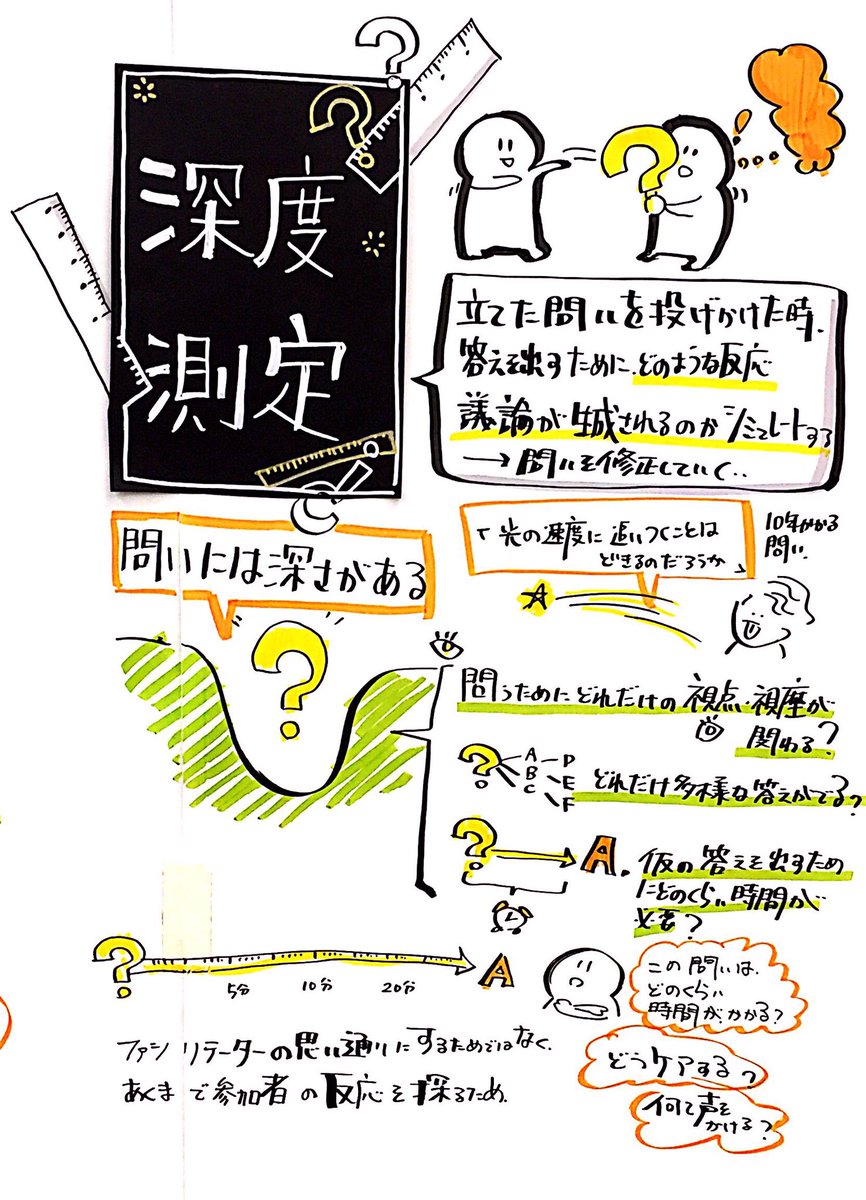 深度
測定
立てた問いを投げかけた時、
答えを出すために、どのような反応
議論が生成されるのかシミュレートする
→問いを修正していく..
問いには深さがある
「光の速度に追いつくことは
できるのだろうか」
10年かかる
問い.
問うためにどれだけの視点・視座が
関わる?
? A D
B E
C F
どれだけ多様な答えがでる?
? A.
仮の答えを出すため
にどのくらい時間が
必要?
? 5分 10分 20分 A
この問いは、
どのくらい
時間がかかる?
どうケアする?
何て声を
かける?
ファシリテーターの思い通りにするためではなく、
あくまで参加者の反応を探るため.